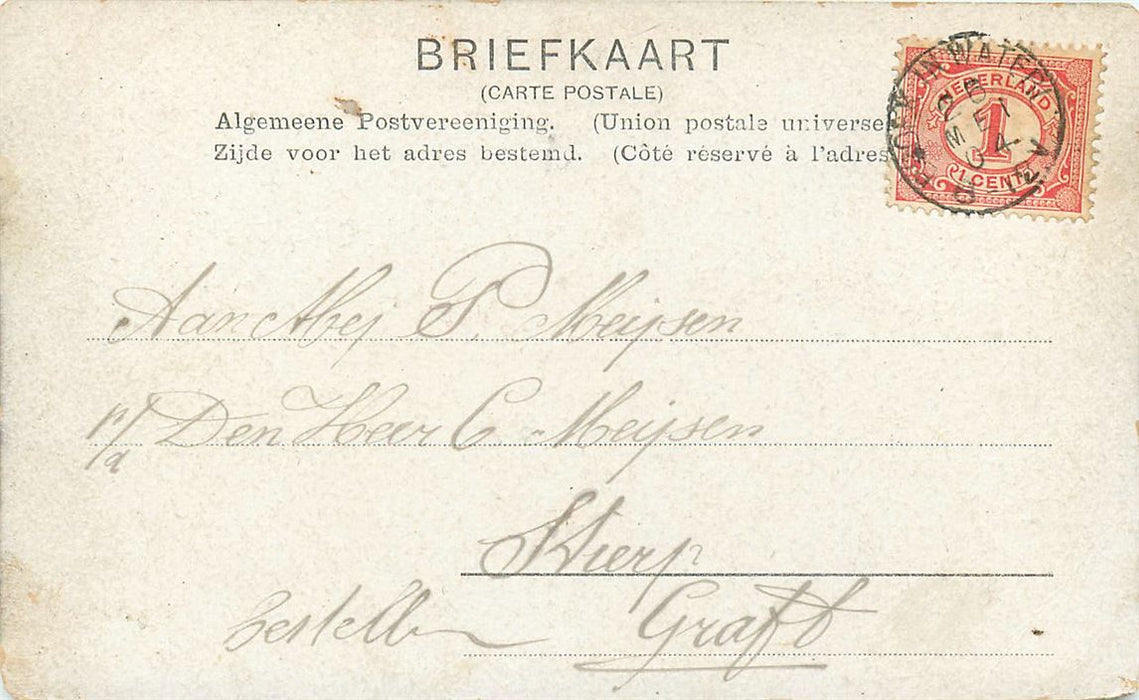 BRIEFKAART
(CARTE POSTALE)
Algemeene Postvereeniging. (Union postale universe
Zijde voor het adres bestemd. (Côté réservé à l'adres
NEDERLAND
1
1 CENT
BROEK IN WATER
MEI
04
Aan Mej P. Meijsen
p/a Den Heer C Meijsen
Stierp
bestellen Graft